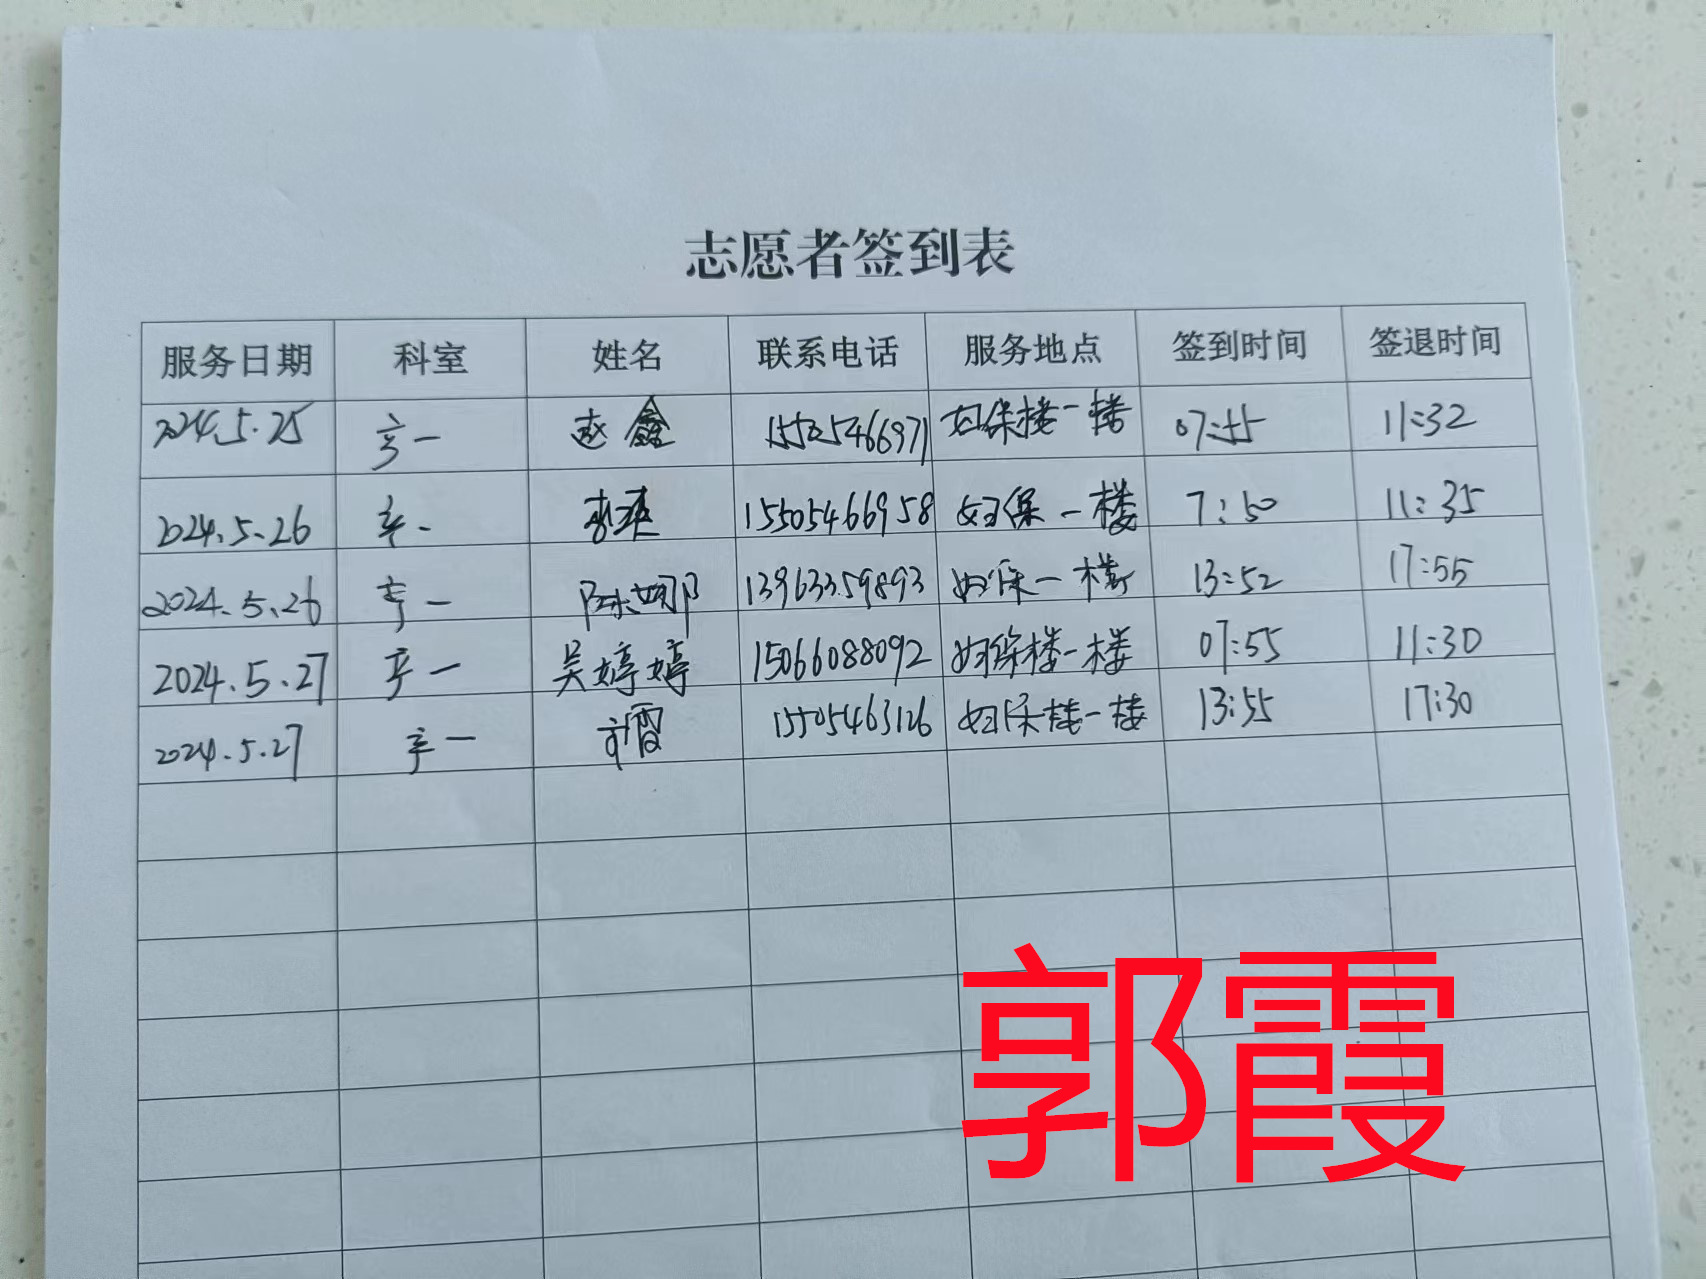 志愿者签到表
服务日期 科室 姓名 联系电话 服务地点 签到时间 签退时间
2024.5.25 产一 赵鑫 15505466971 妇保楼一楼 07:55 11:32
2024.5.26 产一 15505466958 妇保一楼 7:50 11:35
2024.5.26 产一 陈娜 13963359893 妇保一楼 13:52 17:55
2024.5.27 产一 吴婷婷 15066088092 妇保楼一楼 07:55 11:30
2024.5.27 产一 15505463126 妇保楼一楼 13:55 17:30
郭霞